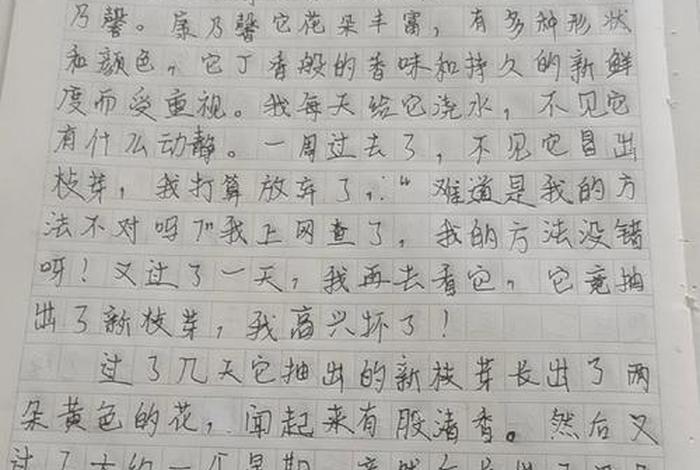 乃馨。康乃馨它花朵丰富，有多种形状
和颜色，它丁香般的香味和持久的新鲜
度而受重视。我每天给它浇水，不见它
有什么动静。一周过去了，不见它冒出
枝芽，我打算放弃了，：“难道是我的方
法不对吗？”我上网查了，我的方法没错
呀！又过了一天，我再去看它，它竟抽
出了新枝芽，我高兴坏了！
过了几天它抽出的新枝芽长出了两
朵黄色的花，闻起来有股清香。然后又
过了大约一个星期